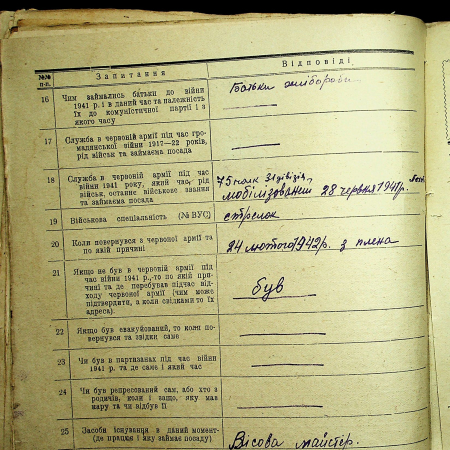 №№ п.п.
Запитання
Відповіді
16
Чим займались батьки до війни
1941 р. і в даний час та належність
їх до комуністичної партії і з
якого часу
Батьки хлібороби
17
Служба в червоній армії під час гро-
мадянської війни 1917—22 років,
рід військ та займаєма посада
18
Служба в червоній армії під час
війни 1941 року, який час, рід
військ, останнє військове звання
та займаєма посада
75 полк 31 дивізія,
мобілізований 28 червня 1941 р.
19
Військова спеціальність (№ ВУС)
стрелок
20
Коли повернувся з червоної армії та
по якій причині
24 лютого 1942 р. з плена
21
Якщо не був в червоній армії під
час війни 1941 р., то по якій при-
чині та де перебував підчас від-
ходу червоної армії (чим може
підтвердити, а коли свідками то їх
адреса).
був
22
Якщо був евакуйований, то коли по-
вернувся та звідки саме
23
Чи був в партизанах під час війни
1941 р. та де саме і який час
24
Чи був репресований сам, або хто з
родичів, коли і защо, яку мав
міру та чи відбув її
25
Засоби існування в даний момент-
(де працює і яку займає посаду)
Вісова майстер.